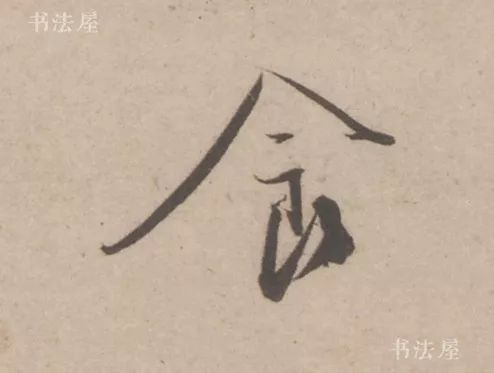 书法屋
食
书法屋